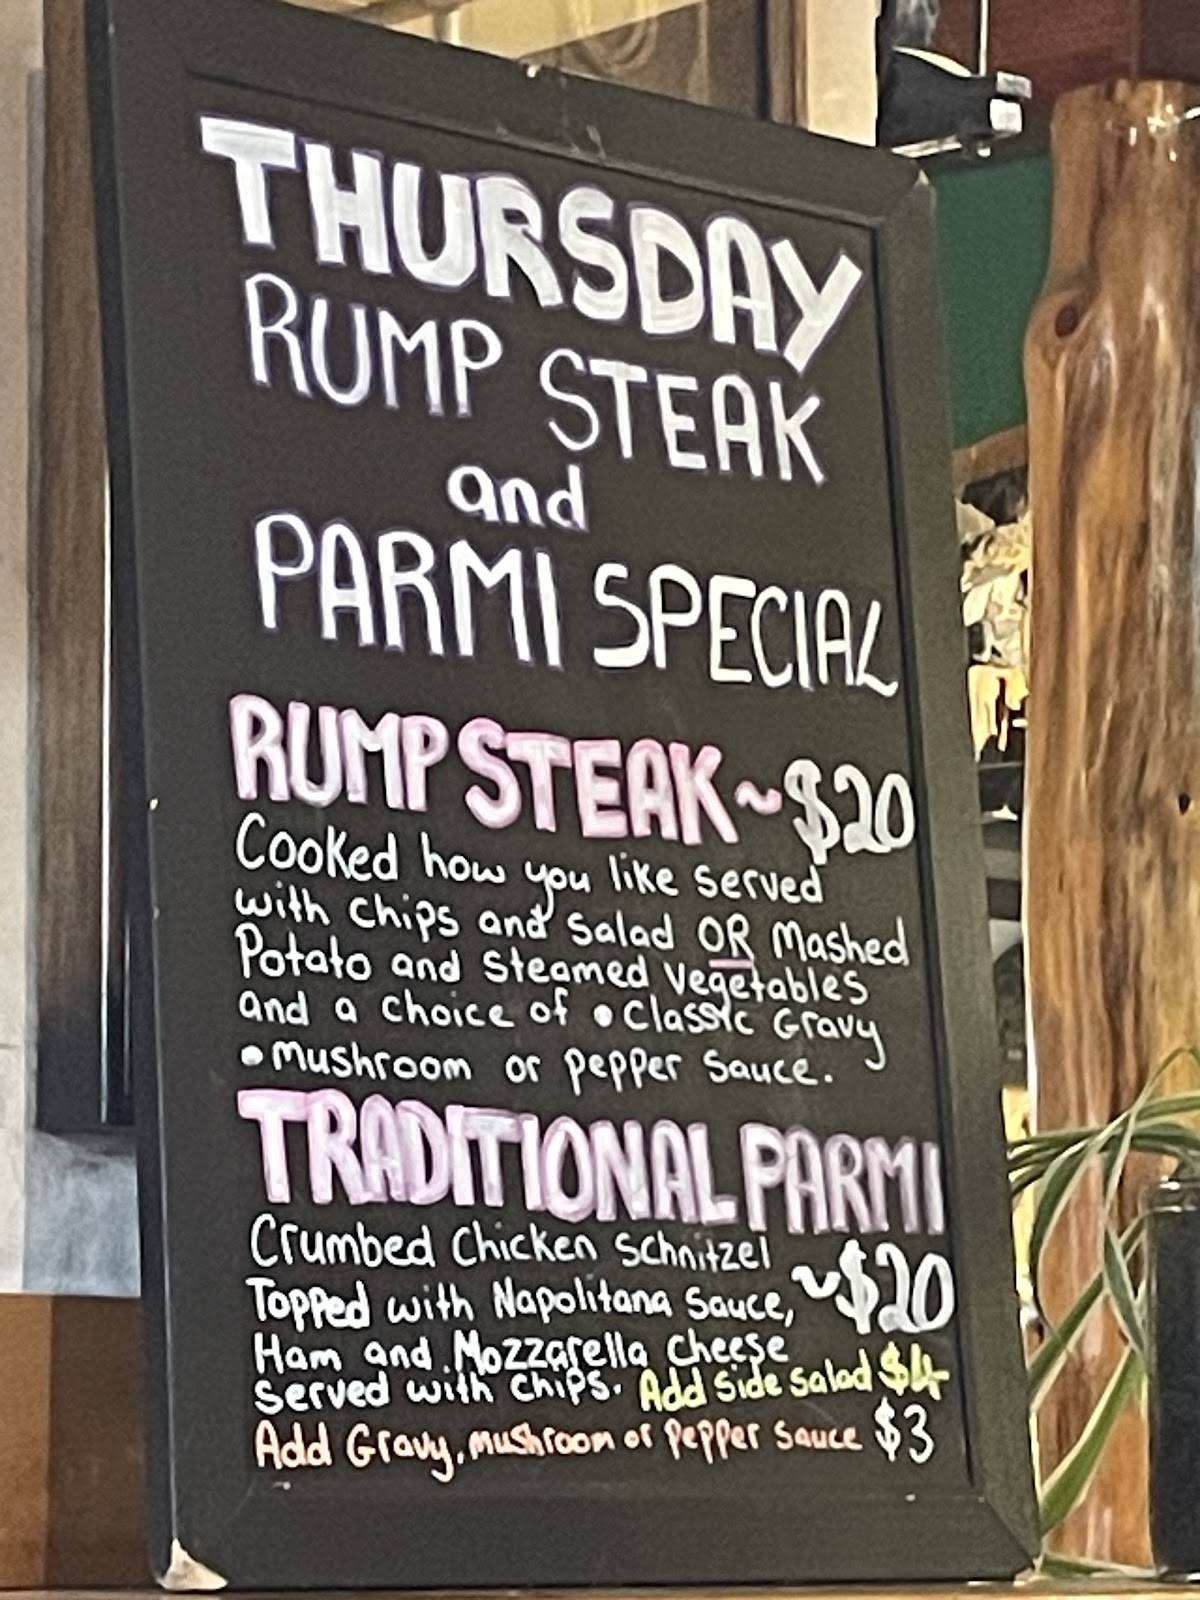 THURSDAY
RUMP STEAK
and
PARMI SPECIAL
RUMP STEAK ~ $20
Cooked how you like served
with chips and salad OR Mashed
Potato and Steamed Vegetables
and a choice of • Classic Gravy
• Mushroom or pepper sauce.
TRADITIONAL PARMI
Crumbed Chicken Schnitzel
~ $20
Topped with Napolitana Sauce,
Ham and Mozzarella cheese
served with chips. Add side salad $4
Add Gravy, mushroom or pepper sauce $3